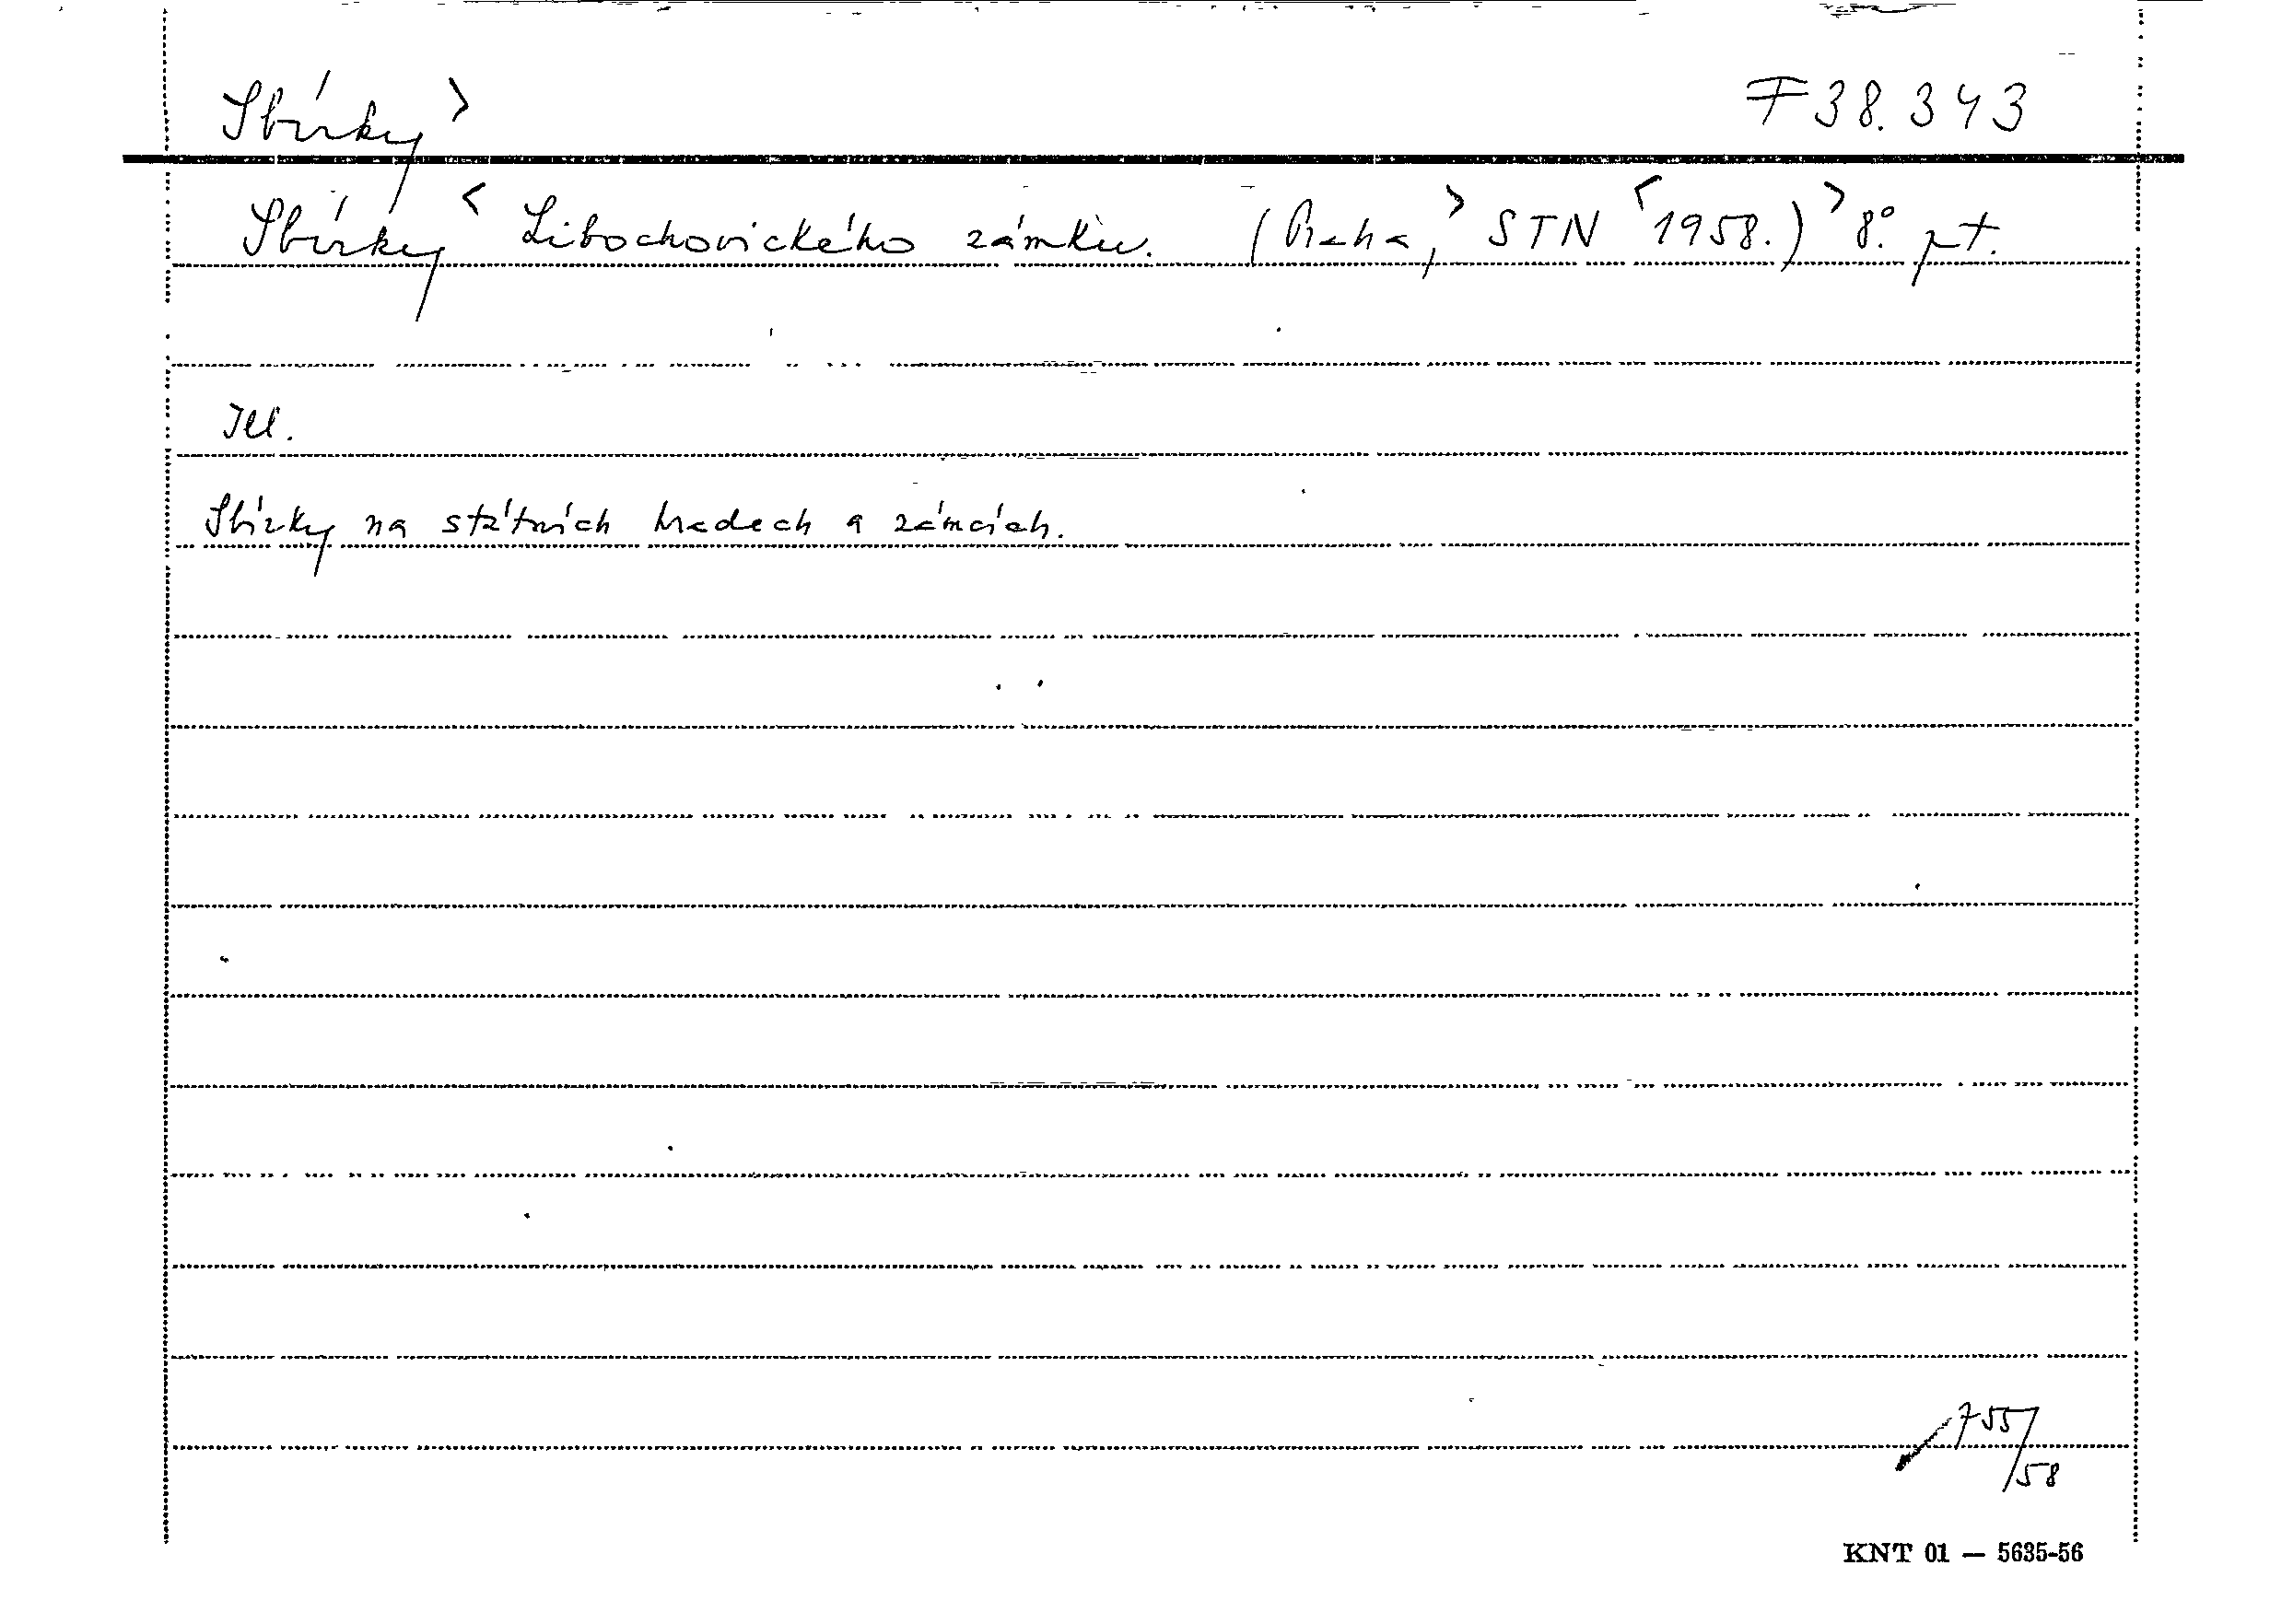 Sbírky > F 38.343
Sbírky < Libochovického zámku. (Praha, > STN < 1958.) > 8°. pt.
Ill.
Sbírky na státních hradech a zámcích.
755/58
KNT 01 — 5635-56